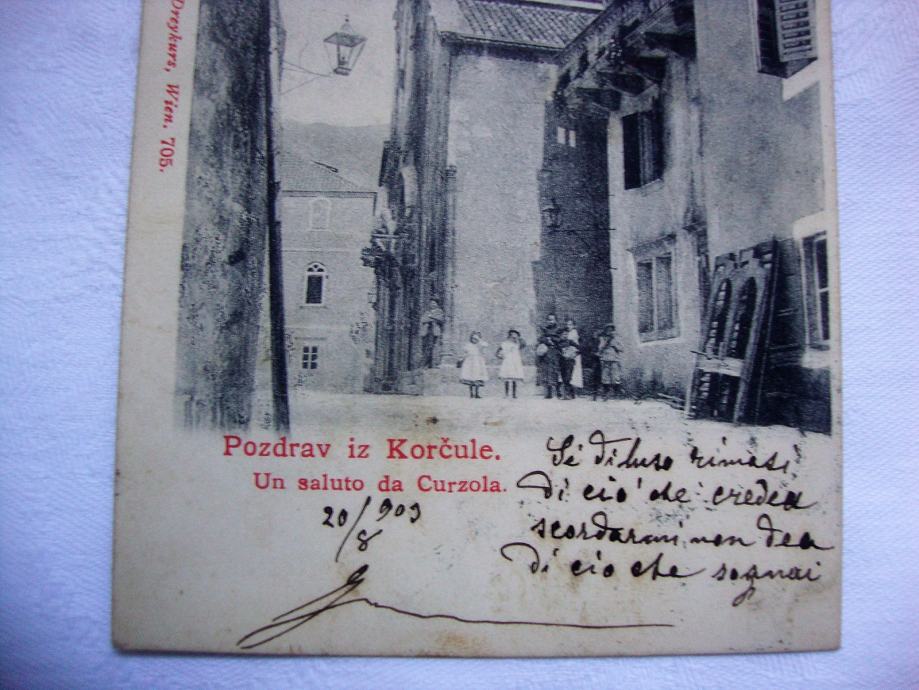 Dreykurs, Wien. 705.
Pozdrav iz Korčule.
Un saluto da Curzola.
20/8 903
Sì deluso rimasi
Di ciò che credea
scordarmi non dea
di cio che sognai